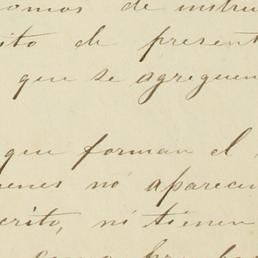 omos de instru
ito de present
que se agreguen
que forman el
enes no aparecen
crito, ni tienen